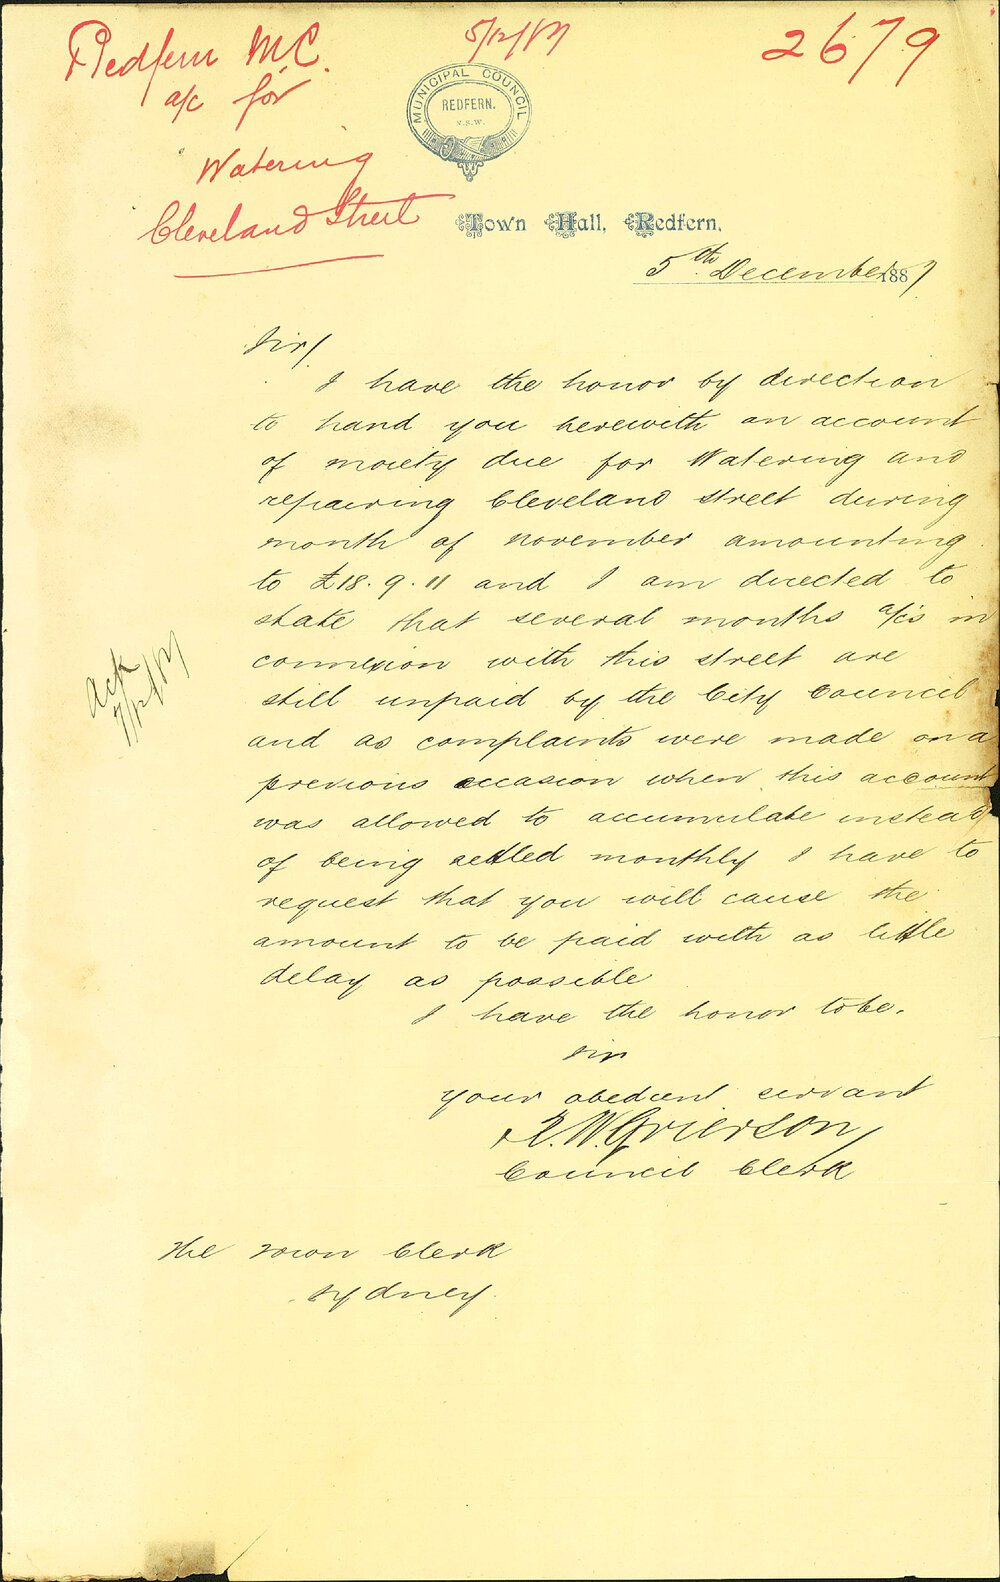 Redfern M.C.
a/c for
Watering
Cleveland Street
5/12/87
2679
MUNICIPAL COUNCIL
REDFERN.
N.S.W.
Town Hall, Redfern,
5th December 1887
Sir/
I have the honor by direction
to hand you herewith an account
of moiety due for Watering and
repairing Cleveland street during
month of november amounting
to £18.9.11 and I am directed to
state that several months a/cs in
connexion with this street are
still unpaid by the City Council
and as complaints were made on a
previous occasion when this account
was allowed to accumulate instead
of being settled monthly I have to
request that you will cause the
amount to be paid with as little
delay as possible
I have the honor to be.
Sir
your obedient servant
W Grierson
Council Clerk
Ack
7/12/87
The Town Clerk
Sydney.